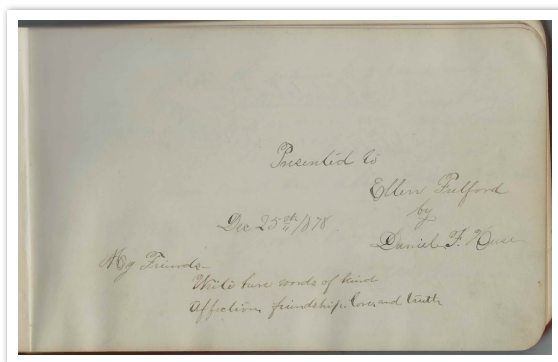 Presented to
Ellen Fulford
by
Dec 25th 1878
Daniel F.
My Friends
Write here words of kind
Affection, friendship, love, and truth